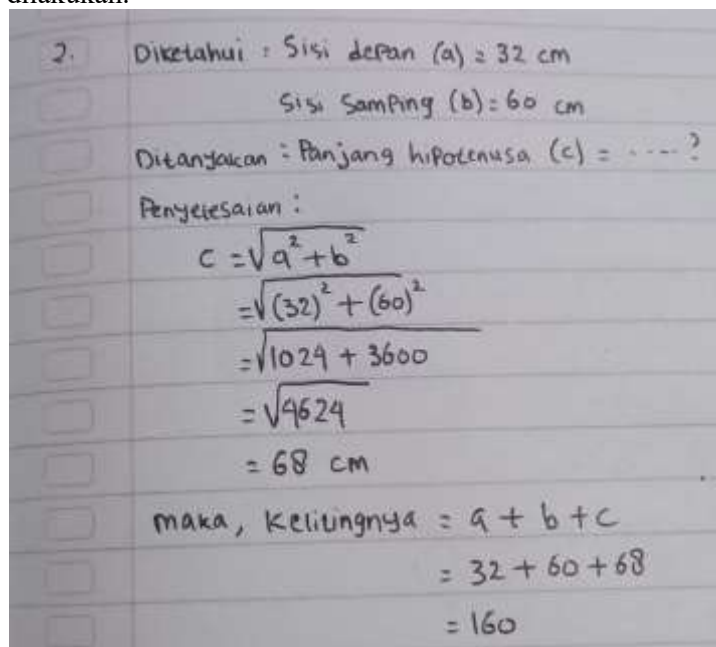 2. Diketahui : Sisi depan (a) = 32 cm
Sisi Samping (b) = 60 cm
Ditanyakan : Panjang hipotenusa (c) = ....?
Penyelesaian :
c = √a² + b²
= √(32)² + (60)²
= √1024 + 3600
= √4624
= 68 cm
maka, Kelilingnya = a + b + c
= 32 + 60 + 68
= 160